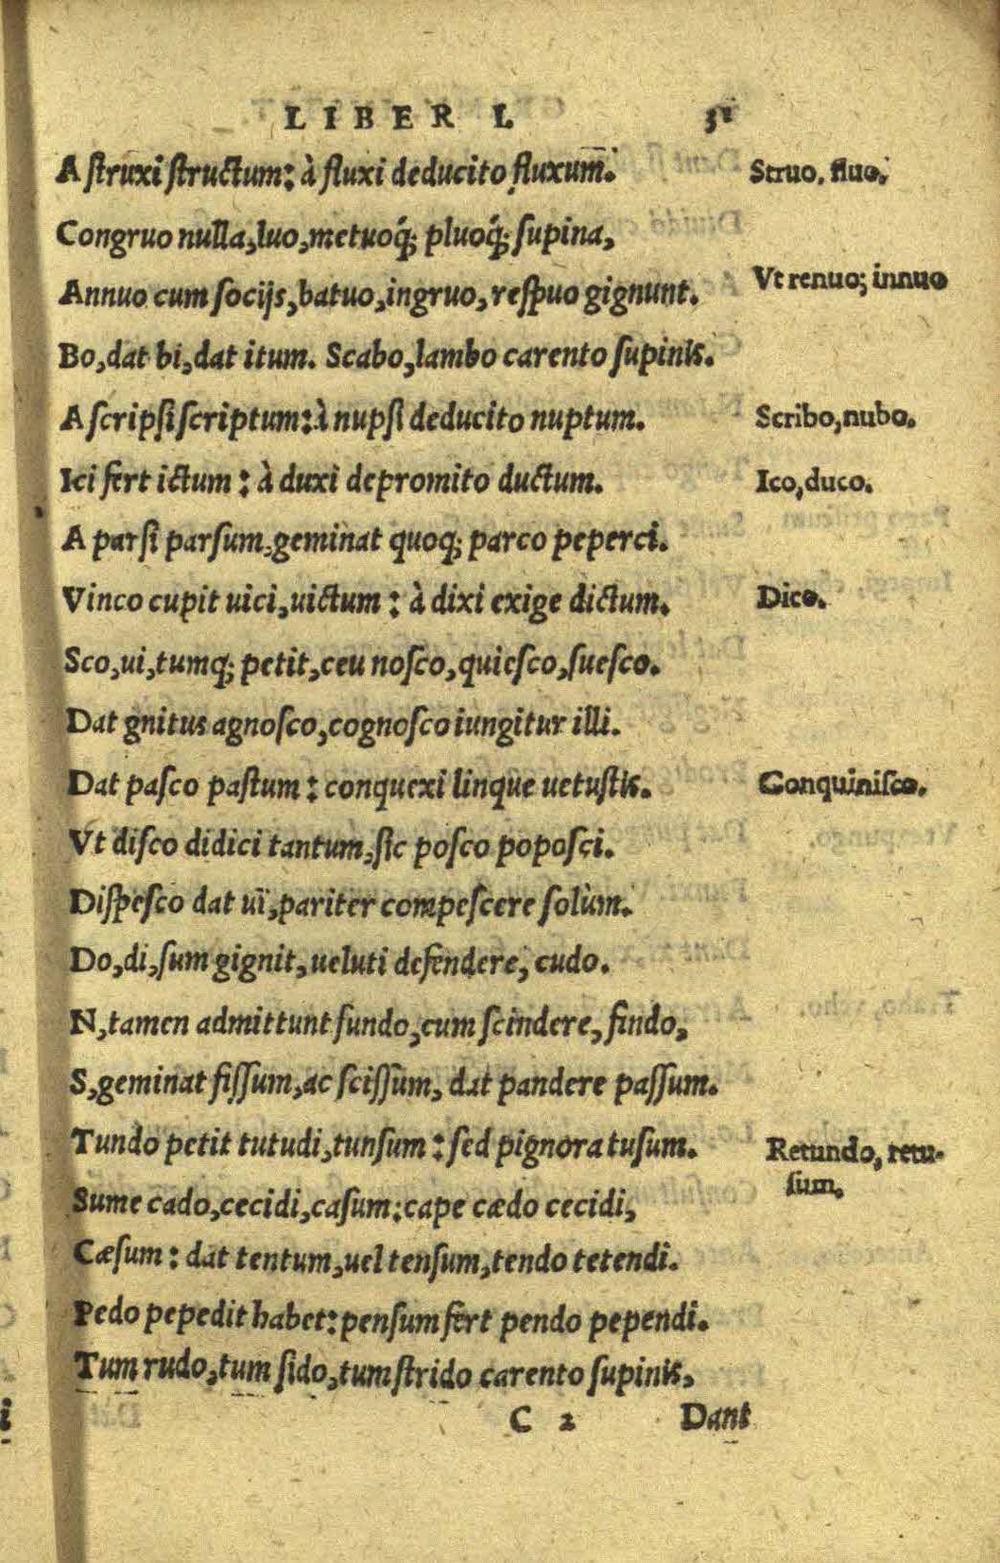 LIBER I.
A ſtruxi ſtructum: à fluxi deducito fluxum. Struo, fluo,
Congruo nulla, luo, metuoq́; pluoq́; ſupina,
Annuo cum ſocijs, batuo, ingruo, reſpuo gignunt. Vt renuo; innuo
Bo, dat bi, dat itum. Scabo, lambo carento ſupinis.
A ſcripſi ſcriptum: à nupſi deducito nuptum. Scribo, nubo.
Ici fert ictum: à duxi depromito ductum. Ico, duco.
A parſi parſum, geminat quoq; parco peperci.
Vinco cupit uici, uictum: à dixi exige dictum. Dico.
Sco, ui, tumq; petit, ceu noſco, quieſco, ſueſco.
Dat gnitus agnoſco, cognoſco iungitur illi.
Dat paſco paſtum: conquexi linque uetuſtis. Conquiniſco.
Vt diſco didici tantum, ſic poſco popoſci.
Diſpeſco dat uï, pariter compeſcere ſolùm.
Do, di, ſum gignit, ueluti defendere, cudo.
N, tamen admittunt fundo, cum ſcindere, findo,
S, geminat fiſſum, ac ſciſſum, dat pandere paſſum.
Tundo petit tutudi, tunſum: ſed pignora tuſum. Retundo, retu-
ſum.
Sume cado, cecidi, caſum: cape cædo cecidi,
Cæſum: dat tentum, uel tenſum, tendo tetendi.
Pedo pepedit habet: penſum fert pendo pependi.
Tum rudo, tum ſido, tum ſtrido carento ſupinis,
C 2 Dant